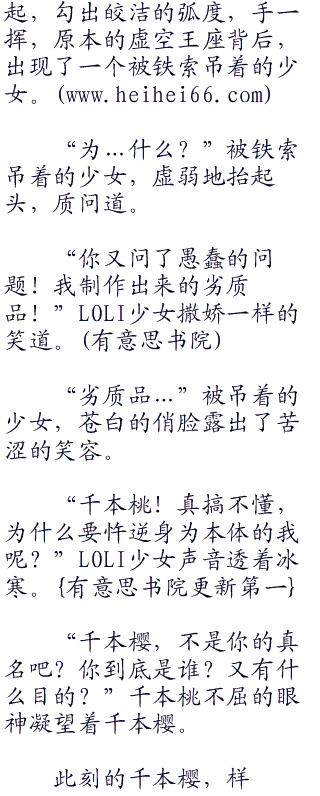 起，勾出皎洁的弧度，手一
挥，原本的虚空王座背后，
出现了一个被铁索吊着的少
女。(www.heihei66.com)
“为…什么？”被铁索
吊着的少女，虚弱地抬起
头，质问道。
“你又问了愚蠢的问
题！我制作出来的劣质
品！”LOLI少女撒娇一样的
笑道。(有意思书院)
“劣质品…”被吊着的
少女，苍白的俏脸露出了苦
涩的笑容。
“千本桃！真搞不懂，
为什么要忤逆身为本体的我
呢？”LOLI少女声音透着冰
寒。{有意思书院更新第一}
“千本樱，不是你的真
名吧？你到底是谁？又有什
么目的？”千本桃不屈的眼
神凝望着千本樱。
此刻的千本樱，样